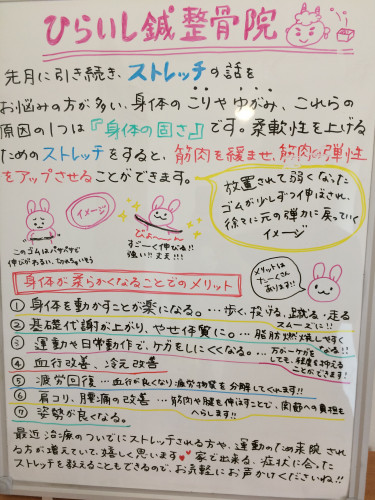 ひらいし鍼整骨院
先月に引き続き、ストレッチの話を
お悩みの方が多い、身体のこりやゆがみ、これらの
原因の1つは『身体の固さ』です。柔軟性を上げる
ためのストレッチをすると、筋肉を緩ませ、筋肉の弾性
をアップさせることができます。
放置されて弱くなった
ゴムが少しずつ伸ばされ、
徐々に元の弾力に戻っていく
イメージ
イメージ
このゴムはパサパサで
伸びがわるい、切れちゃいそう
びよーーん
すごーく伸びる!!
強い!!丈夫!!!
身体が柔らかくなることでのメリット
メリットは
たーくさん
あります!!
① 身体を動かすことが楽になる。…歩く、投げる、蹴る、走る
スムーズに!!
② 基礎代謝が上がり、やせ体質に。…脂肪燃焼しやすく
なる!!
③ 運動や日常動作で、ケガをしにくくなる。…万が一ケガを
しても、軽度を抑える
ことができます!
④ 血行改善、冷え改善
⑤ 疲労回復…血行が良くなり疲労物質を分解してくれます!!
⑥ 肩コリ、腰痛の改善…筋肉や腱を伸ばすことで、関節への負担も
へらします!!
⑦ 姿勢が良くなる。
最近治療のついでにストレッチされる方や、運動のため来院され
る方が増えていて嬉しく思います♥家で出来る、症状に合った
ストレッチを教えることもできるので、お気軽にお声かけくださいね!!